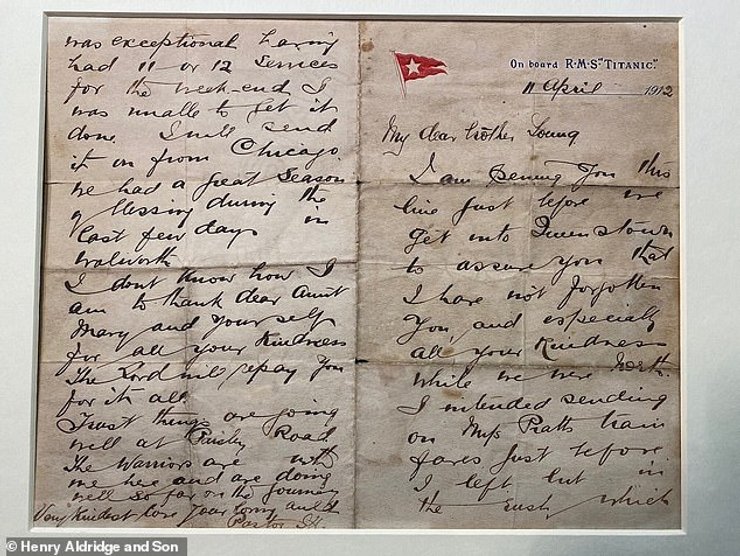 On board R.M.S. "TITANIC."
11 April 1912
My dear brother Young
I am penning you this
line just before we
get into Queenstown
to assure you that
I have not forgotten
you and especially
all your kindness
while we were North.
I intended sending
on Miss Pratts train
fares just before
I left but in
the rush which
was exceptional having
had 11 or 12 services
for the week-end I
was unable to get it
done I will send
it on from Chicago.
we had a great season
of blessing during the
last few days in
Walworth
I dont know how I
am to thank dear Aunt
Mary and yourself
for all your kindness
The Lord will repay you
for it all.
Trust things are going
well at Paisley Road
The Warriors are with
me here and are doing
well so far on the Journey
Very kindest love your loving auld
Pastor
© Henry Aldridge and Son